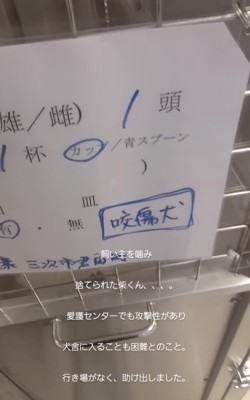 雄／雌) 1 頭
1 杯 カップ／青スプーン
)
皿
有 ・ 無 咬傷犬
三次市君田
飼い主を噛み
捨てられた柴くん、、、。
愛護センターでも攻撃性があり
犬舎に入ることも困難とのこと。
行き場がなく、助け出しました。